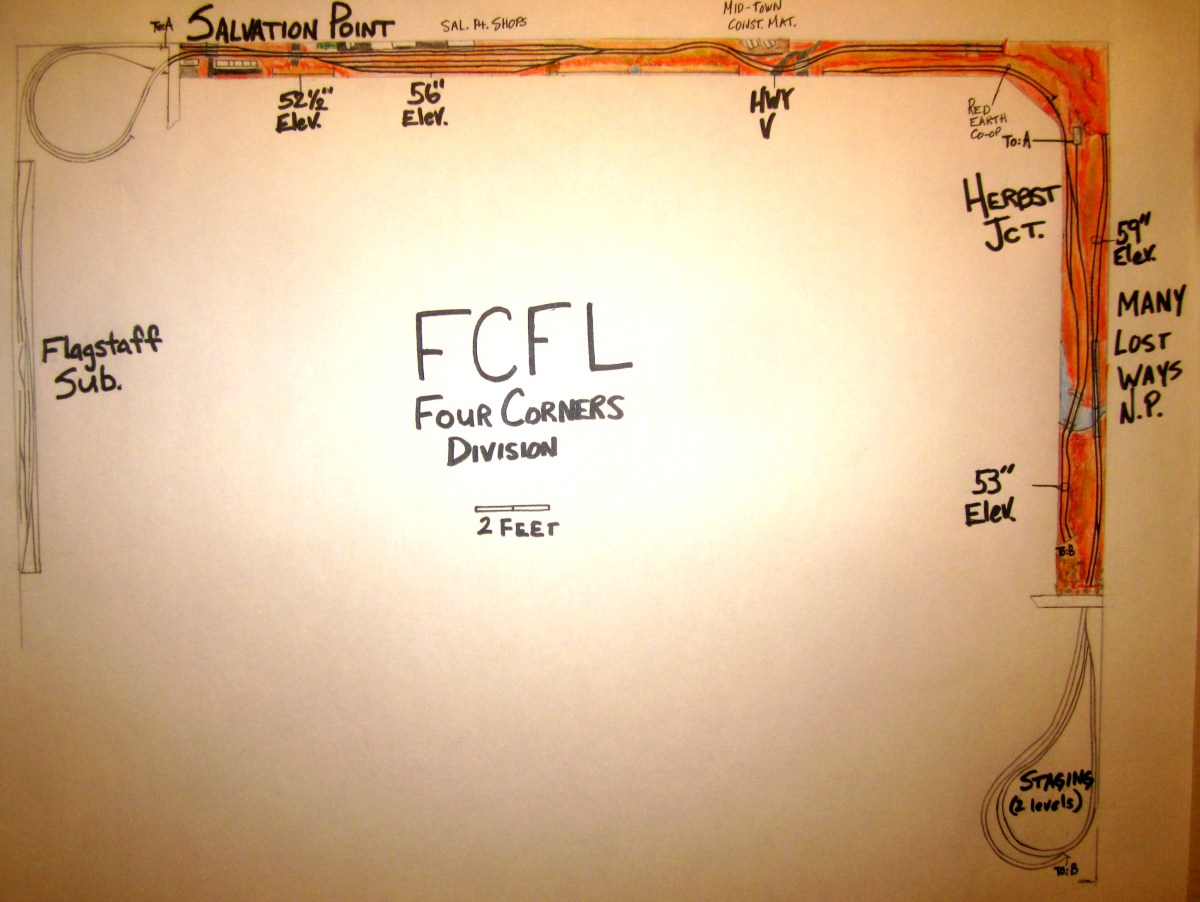 To:A
SALVATION POINT
SAL. Pt. SHOPS
MID-TOWN
CONST. MAT.
52½"
Elev.
56"
Elev.
HWY
V
RED
EARTH
CO-OP
To:A
HERBST
JCT.
59"
Elev.
MANY
LOST
WAYS
N.P.
Flagstaff
Sub.
FCFL
FOUR CORNERS
DIVISION
2 FEET
53"
Elev.
To:B
STAGING
(2 levels)
To:B